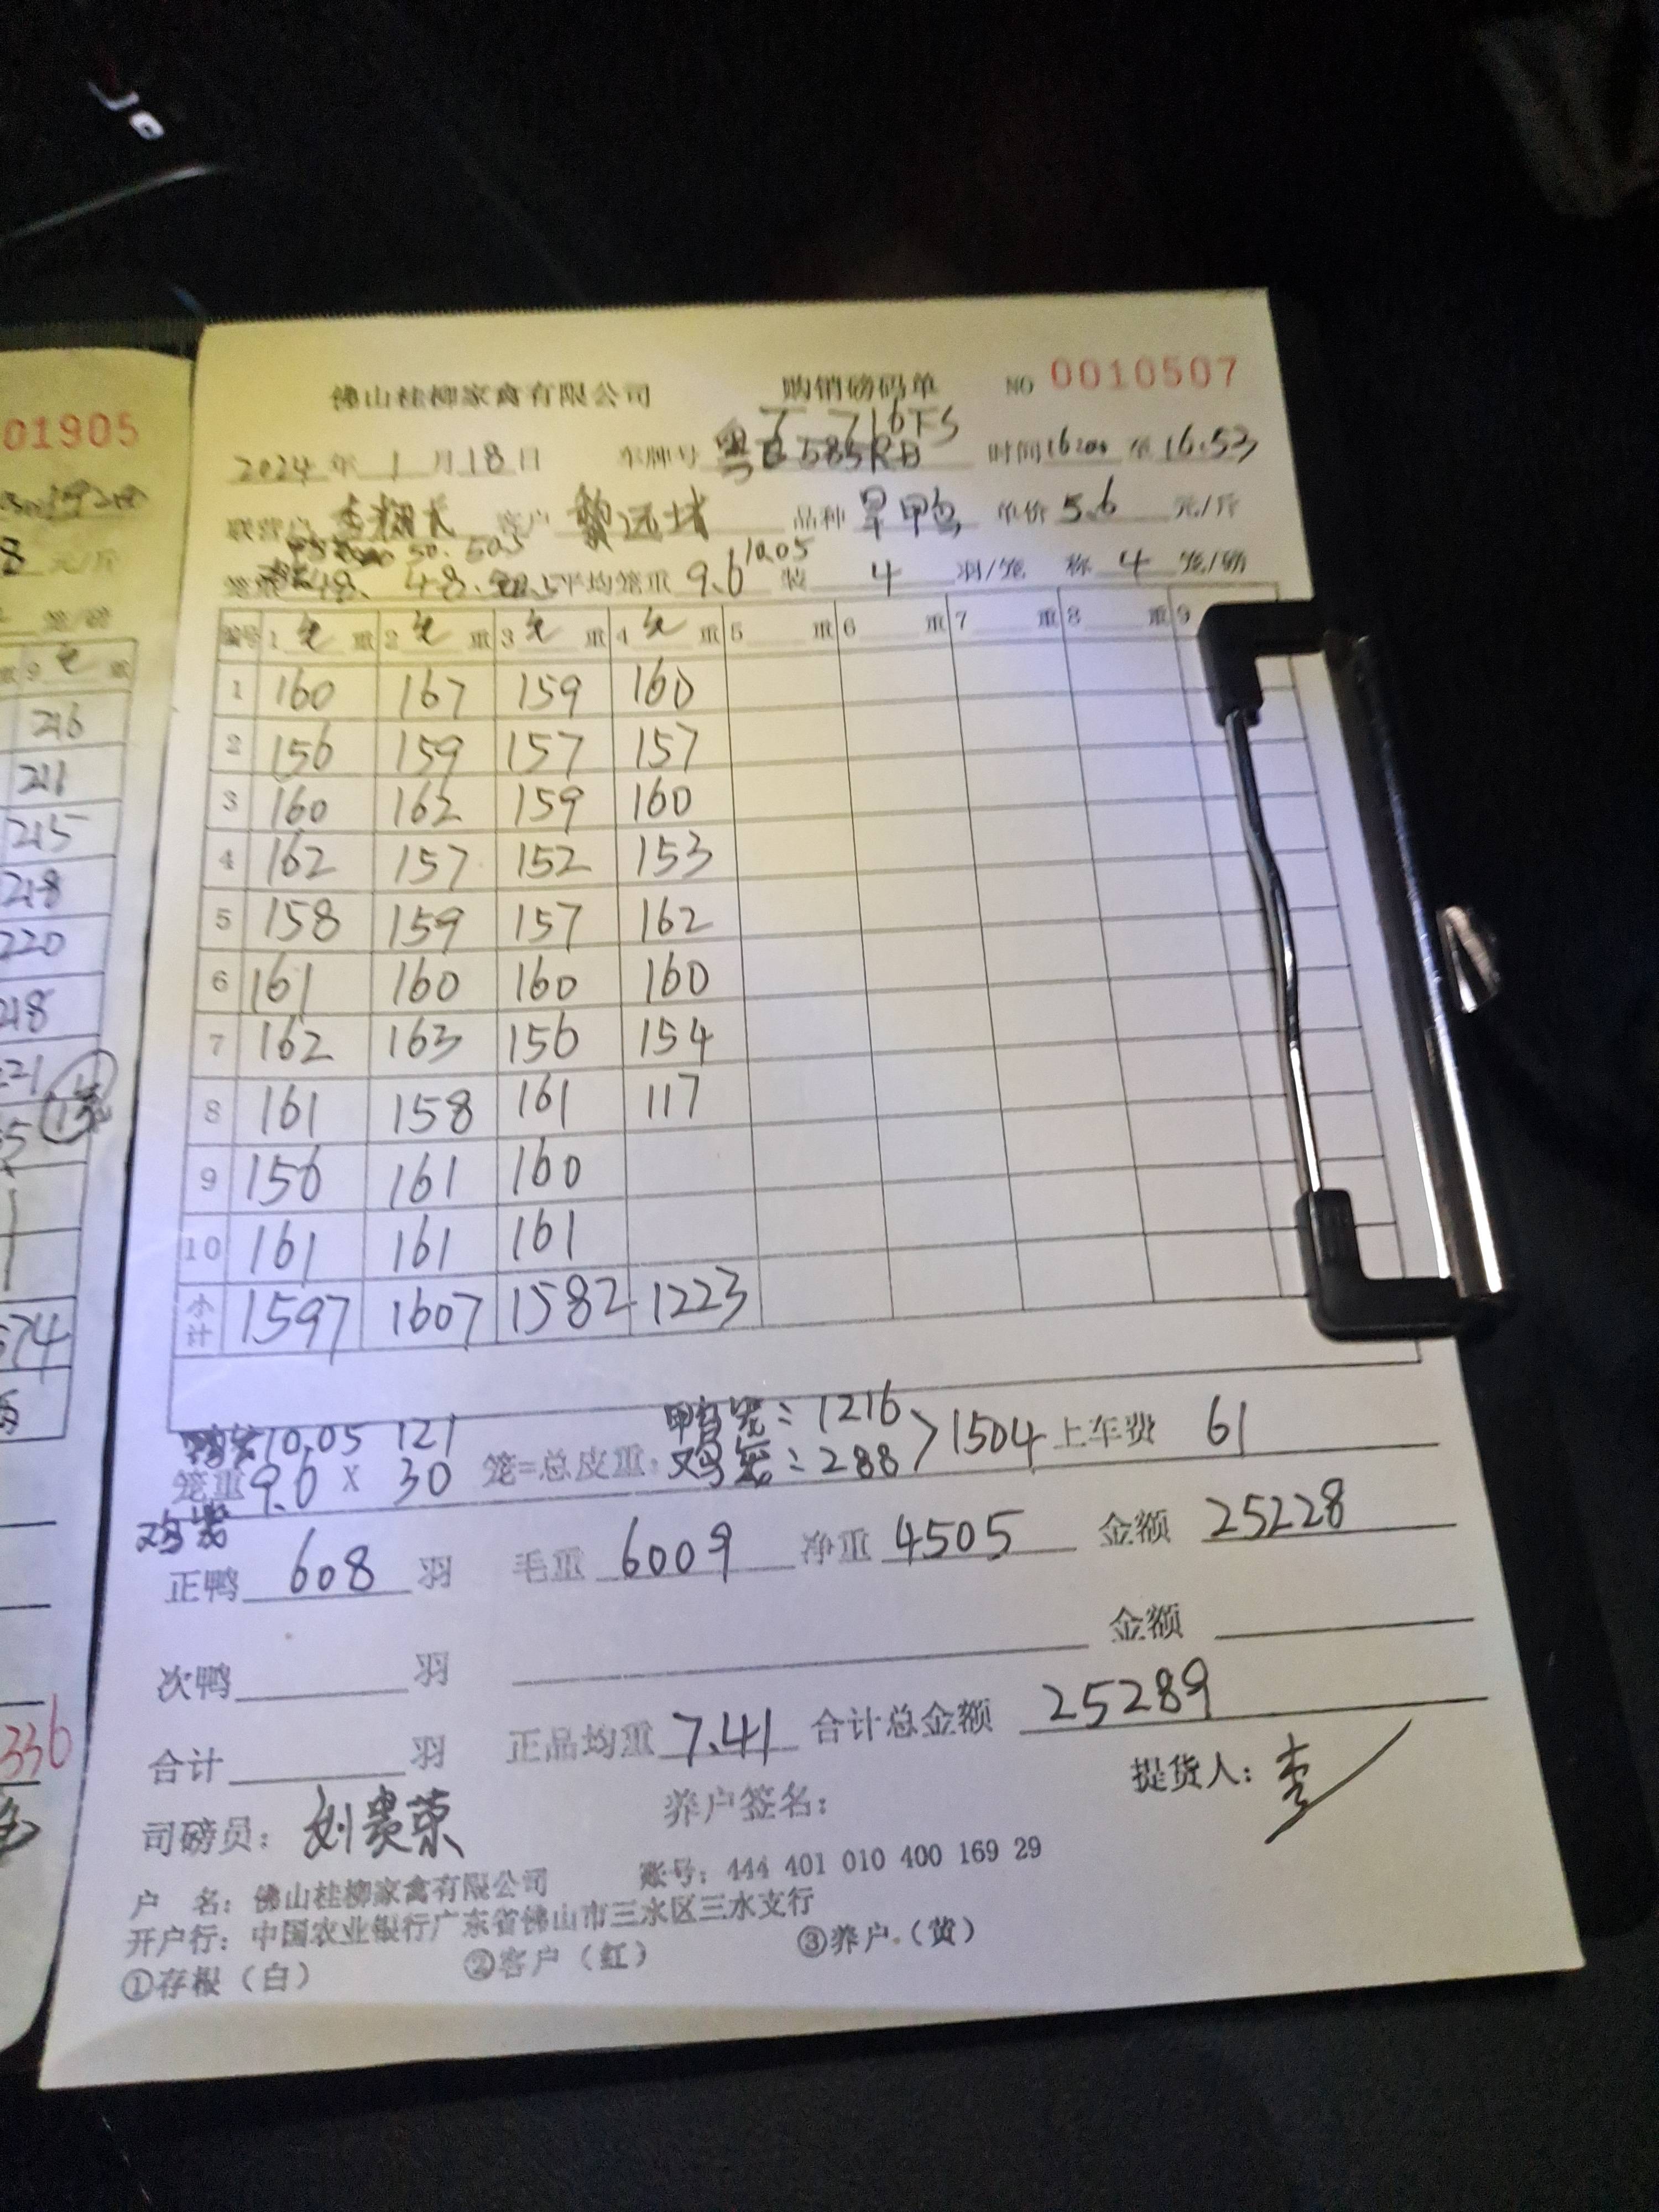 佛山桂柳家禽有限公司 购销磅码单 NO 0010507
T 716FS
2024 年 1 月 18 日 车牌号 粤 时间 16:00 至 16.53
联营户 客户 品种 旱甲鸭 单价 5.6 元/斤
50. 50.5
48. 48. 平均笼重 9.6 10.05 装 4 羽/笼 称 4 笼/磅
编号 1 毛 重 2 毛 重 3 毛 重 4 毛 重 5 重 6 重 7 重 8 重 9
1 160 167 159 160
2 156 159 157 157
3 160 162 159 160
4 162 157 152 153
5 158 159 157 162
6 161 160 160 160
7 162 163 156 154
8 161 158 161 117
9 156 161 160
10 161 161 161
小计 1597 1607 1582 1223
10.05 121 鸭笼:1216
笼重 9.6 X 30 笼=总皮重: 鸡笼:288 > 1504 上车费 61
鸡笼
正鸭 608 羽 毛重 6009 净重 4505 金额 25228
次鸭 羽 金额
合计 羽 正品均重 7.41 合计总金额 25289
司磅员: 刘贵荣 养户签名: 提货人: 李
户 名: 佛山桂柳家禽有限公司 账号: 444 401 010 400 169 29
开户行: 中国农业银行广东省佛山市三水区三水支行
①存根(白) ②客户(红) ③养户(黄)
01905
8 元/斤
9 毛 重
216
211
215
218
220
218
21
574
336